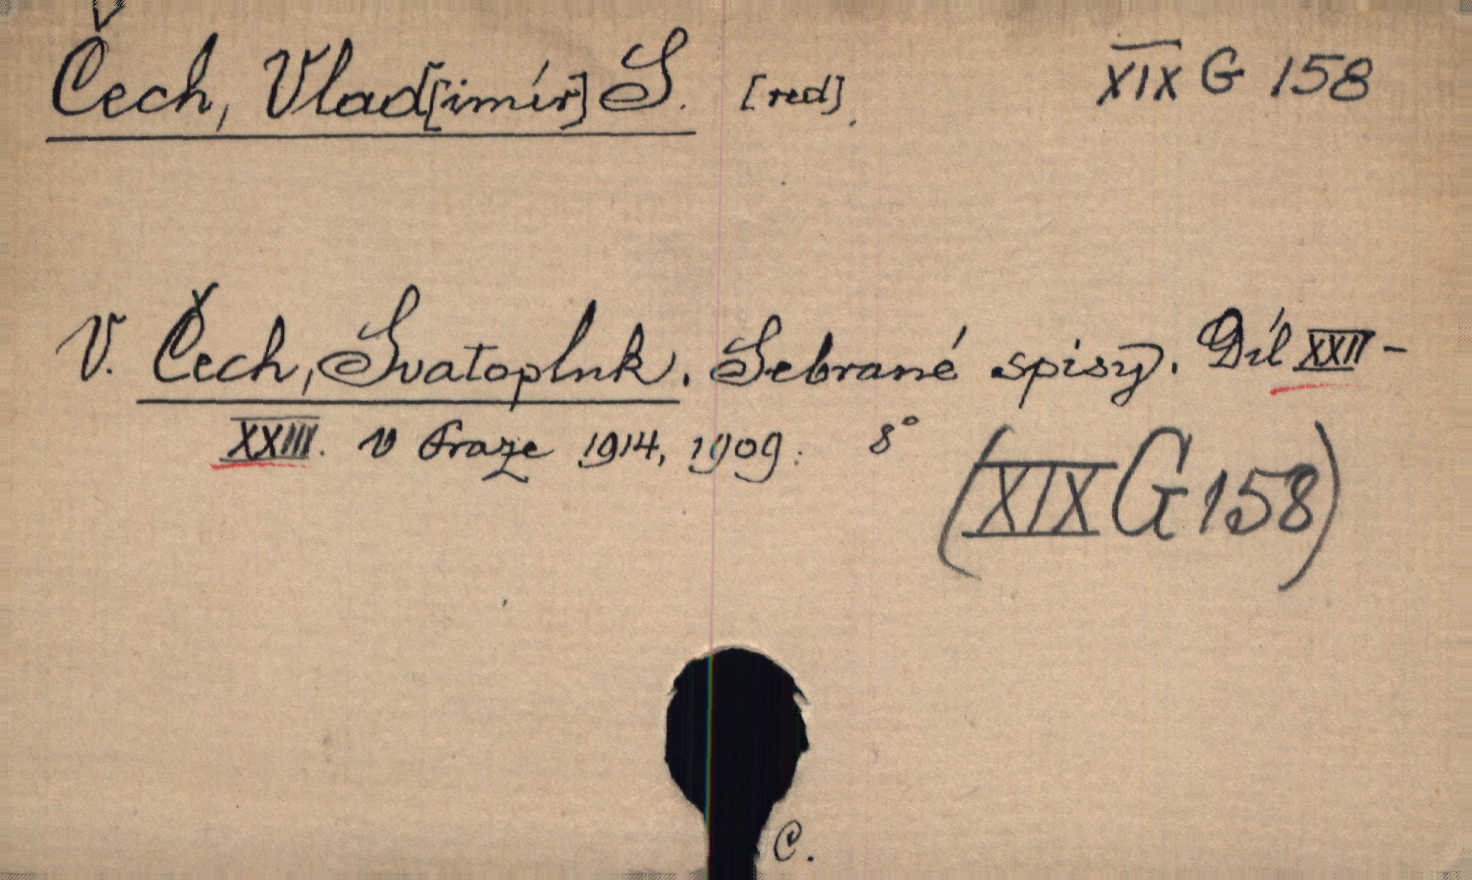 Čech, Vlad[imír] S. [red]. XIX G 158
V. Čech, Svatopluk. Sebrané spisy. Díl XXII-
XXIII. v Praze 1914, 1909. 8°
(XIX G 158)
C.